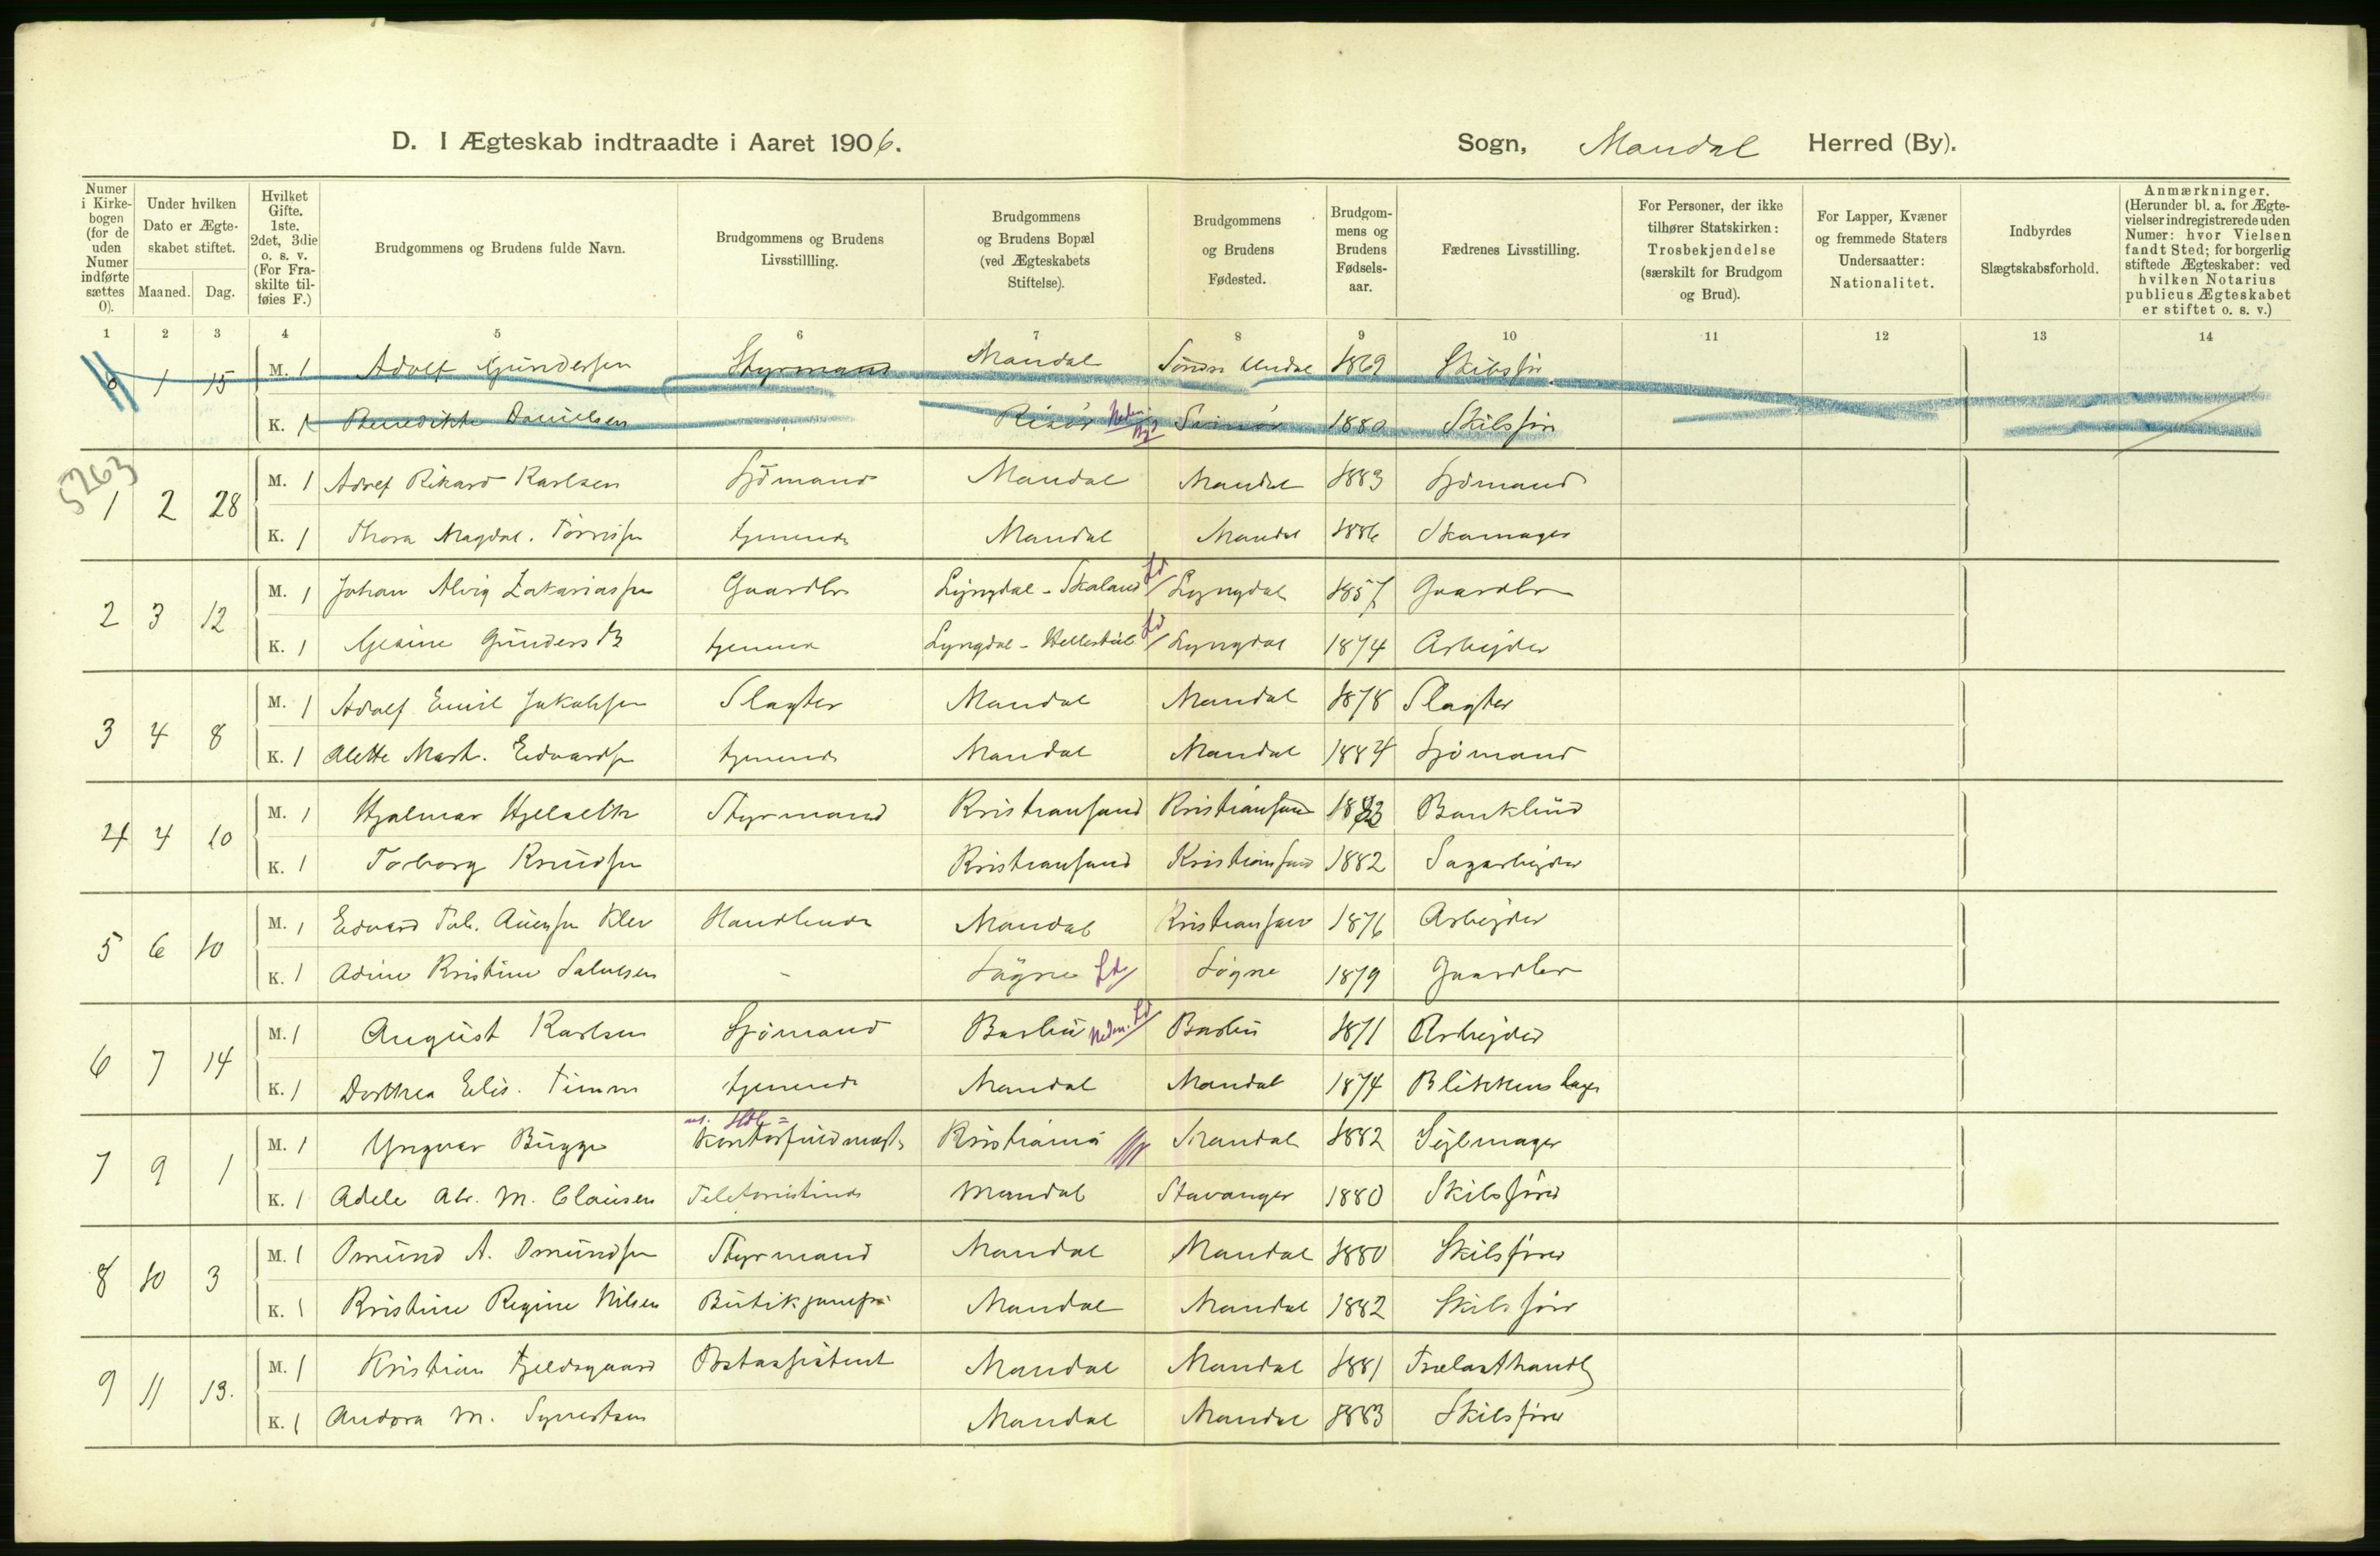 D. I Ægteskab indtraadte i Aaret 1906.
Sogn, Mandal Herred (By).
Numer i Kirke-bogen (for de uden Numer indførte sættes 0).
Under hvilken Dato er Ægte-skabet stiftet.
Maaned. Dag.
Hvilket Gifte. 1ste, 2det, 3die o. s. v. (For Fra-skilte til-føies F.)
Brudgommens og Brudens fulde Navn.
Brudgommens og Brudens Livsstillling.
Brudgommens og Brudens Bopæl (ved Ægteskabets Stiftelse).
Brudgommens og Brudens Fødested.
Brudgom-mens og Brudens Fødsels-aar.
Fædrenes Livsstilling.
For Personer, der ikke tilhører Statskirken: Trosbekjendelse (særskilt for Brudgom og Brud).
For Lapper, Kvæner og fremmede Staters Undersaatter: Nationalitet.
Indbyrdes Slægtskabsforhold.
Anmærkninger. (Herunder bl. a. for Ægte-vielser indregistrerede uden Numer: hvor Vielsen fandt Sted; for borgerlig stiftede Ægteskaber: ved hvilken Notarius publicus Ægteskabet er stiftet o. s. v.)
1 2 3 4 5 6 7 8 9 10 11 12 13 14
0 1 15 M. 1 Adolf Gundersen Styrmand Mandal Søndre Undal 1869 Skibsfør
K. 1 Benedikte Danielsen Risør Svinør 1880 Skibsfør
5263
1 2 28 M. 1 Adolf Rikard Karlsen Sjømand Mandal Mandal 1883 Sjømand
K. 1 Thora Magdal. Tørrisen tjenende Mandal Mandal 1886 Skomager
2 3 12 M. 1 Johan Alvig Zakariassen Gaardbr Lyngdal - Skaland Ld Lyngdal 1857 Gaardbr
K. 1 Gesine Gundersd Tjenende Lyngdal - Ld Lyngdal 1874 Arbejder
3 4 8 M. 1 Adolf Emil Jakobsen Slagter Mandal Mandal 1878 Slagter
K. 1 Alette Marth. Edvardsen tjenende Mandal Mandal 1884 Sjømand
4 4 10 M. 1 Hjalmar Styrmand Kristiansand Kristiansand Bankbud
K. 1 Torborg Knudsen Kristiansand Kristiansand 1882 Sagarbejder
5 6 10 M. 1 Edvard Tob. Klev Handlende Mandal Kristiansand 1876 Arbejder
K. 1 Adine Kristine Salvesen - Søgne Ld Søgne 1879 Gaardbr
6 7 14 M. 1 August Karlsen Sjømand Barbu Neden. Ld Barbu 1871 Arbejder
K. 1 Dorthea Elis. Timm tjenende Mandal Mandal 1874 Blikkenslager
7 9 1 M. 1 Yngvar Bugge Kontorfuldmægt. Kristiania Mandal 1882 Sejlmager
K. 1 Adele Alv. M. Clausen Telefonistinde Mandal Stavanger 1880 Skibsfører
8 10 3 M. 1 Omund A. Omundsen Styrmand Mandal Mandal 1880 Skibsfører
K. 1 Kristine Regine Nilsen Butikjomfru Mandal Mandal 1882 Skibsfører
9 11 13. M. 1 Kristian Fjeldsgaard Mandal Mandal 1881 Trælasthandl
K. 1 Andora M. Syvertsen Mandal Mandal 1883 Skibsfører